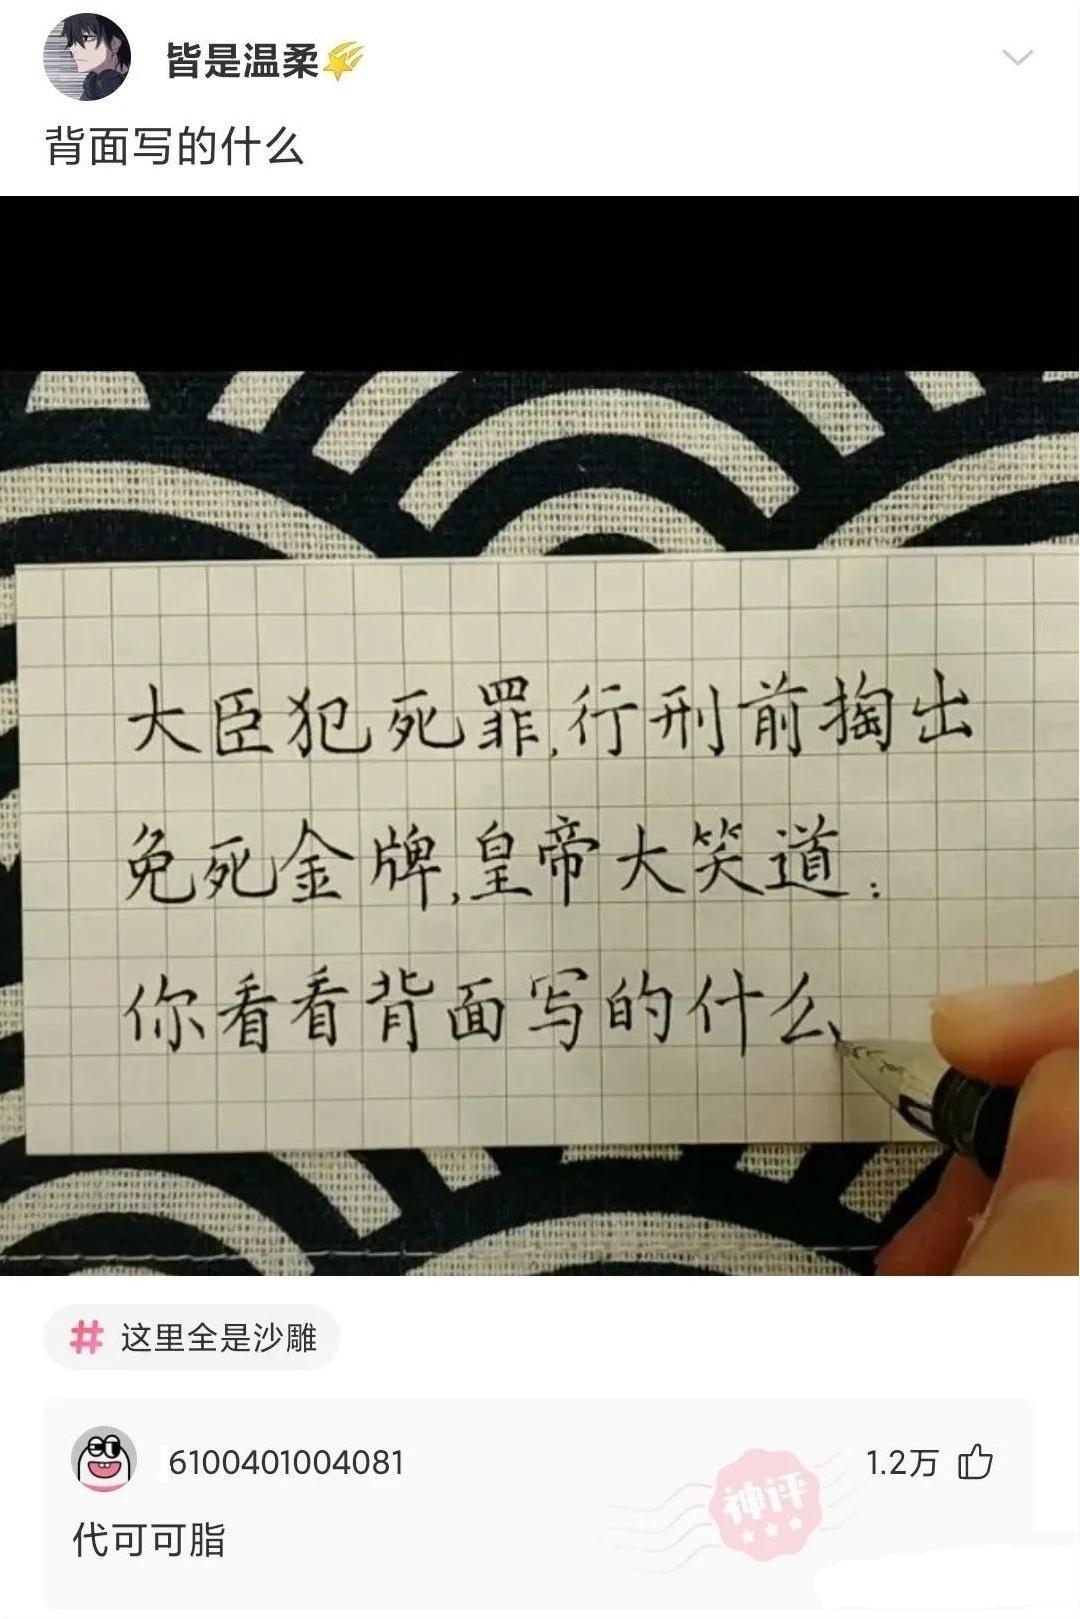 皆是温柔
背面写的什么
大臣犯死罪,行刑前掏出
免死金牌,皇帝大笑道:
你看看背面写的什么
# 这里全是沙雕
6100401004081
神评
1.2万
代可可脂